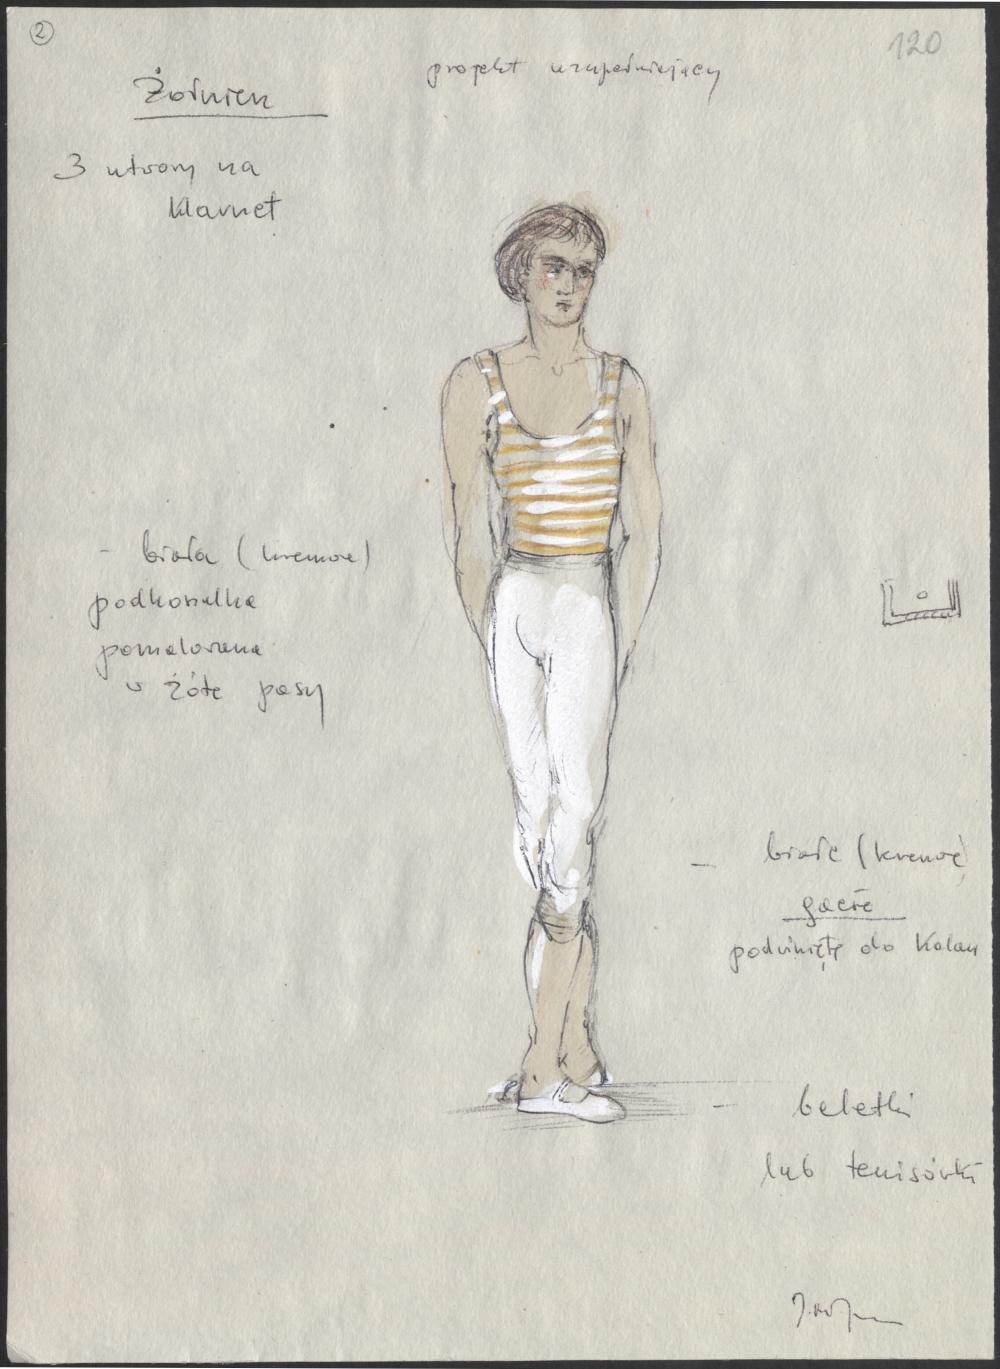 2
120
projekt uzupełniający
Żołnierz
3 utwory na
klarnet
- biała (kremowa)
podkoszulka
pomalowana
w żółte pasy
- białe (kremowe)
gacie
podwinięte do kolan
- baletki
lub tenisówki